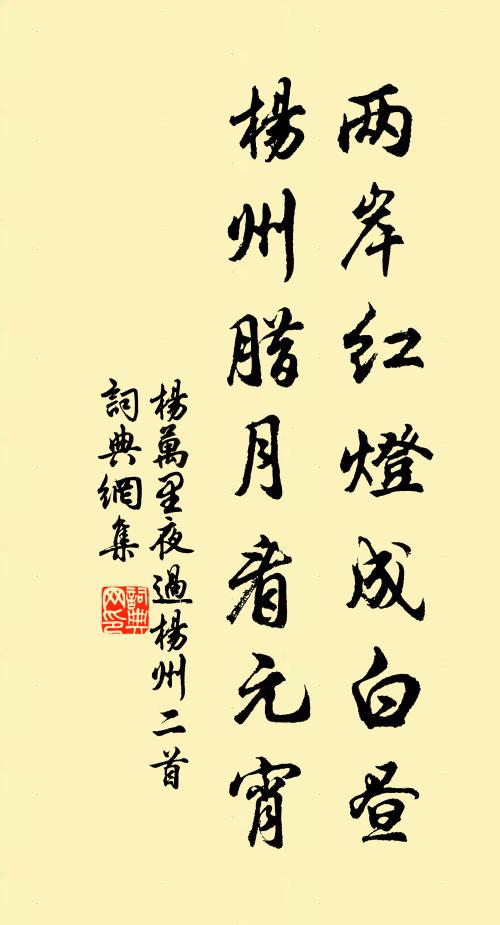 两岸红燈成白昼
楊州腊月看元宵
楊萬里夜過楊州二首
詞典網集
詞典网印